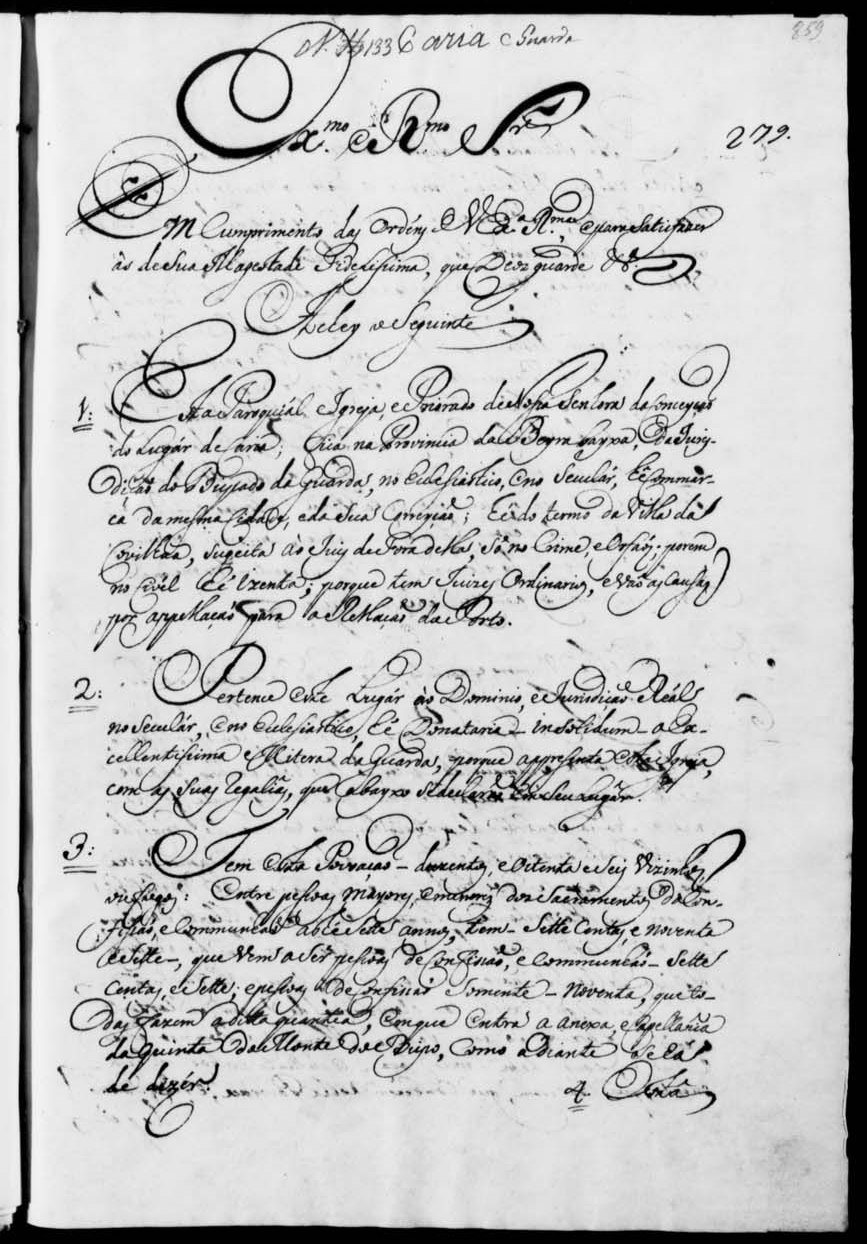 N. 133 Caria Guarda
259
Exmo. e Rmo. Snr.
279.
EM Cumprimento das Ordẽns de V. Exa. Rma., e para Satisfazer
ás de Sua Magestade Fidelissima, que Deos guarde &a.
Fiz ley o Seguinte
1: Esta Parrquiál Igreja, e Priorado de Nossa Senhora da Conceyçaõ
do Lugár de Caria; fica na Provincia da Beyra bayxa, Da Juris-
diçaõ do Bispado da Guarda, no Ecclesiastico, e no Seculár, hé Commar-
ca da mesma Cidade, e da Sua Correiçaõ; hé do termo da Villa da
Covilhãa, sugeita ao Juis de Fora della, só no Crime, e Orfaõs. porem
no civel hé izenta; porque tem Juizes Ordinarios, e vaõ as Causas
por appellaçaõ para a Rellaçaõ do Porto.
2: Pertence este Lugár ao Dominio, e Jurisdiçaõ Reál
no Seculár, e no Ecclesiastico, hé Donataria - in Solidum - a Ex-
cellentissima Mitera da Guarda, porque appresenta esta Igreja,
com as suas regalias, que abayxo se declara em seu lugár.
3: Tem esta Povoaçaõ - duzentos, e Oitenta e Seis Vizinhos,
ou fogos: Entre pessoas mayores, e menores dos Sacramentos da Con-
fissaõ, e Communhaõ athé Sette annos, tem - Sette Centos, e noventa
e Sette -, que vem a Sêr pessoas de Confissaõ, e Communhaõ - Sette
Centas, e Sette; e pessoas de Confissaõ somente - Noventa, que to-
das fazem a ditta quantia, em que entra a anexa, e Capellania
da Quinta do Monte do Bispo, como adiante se há
de dizêr.
4. Està